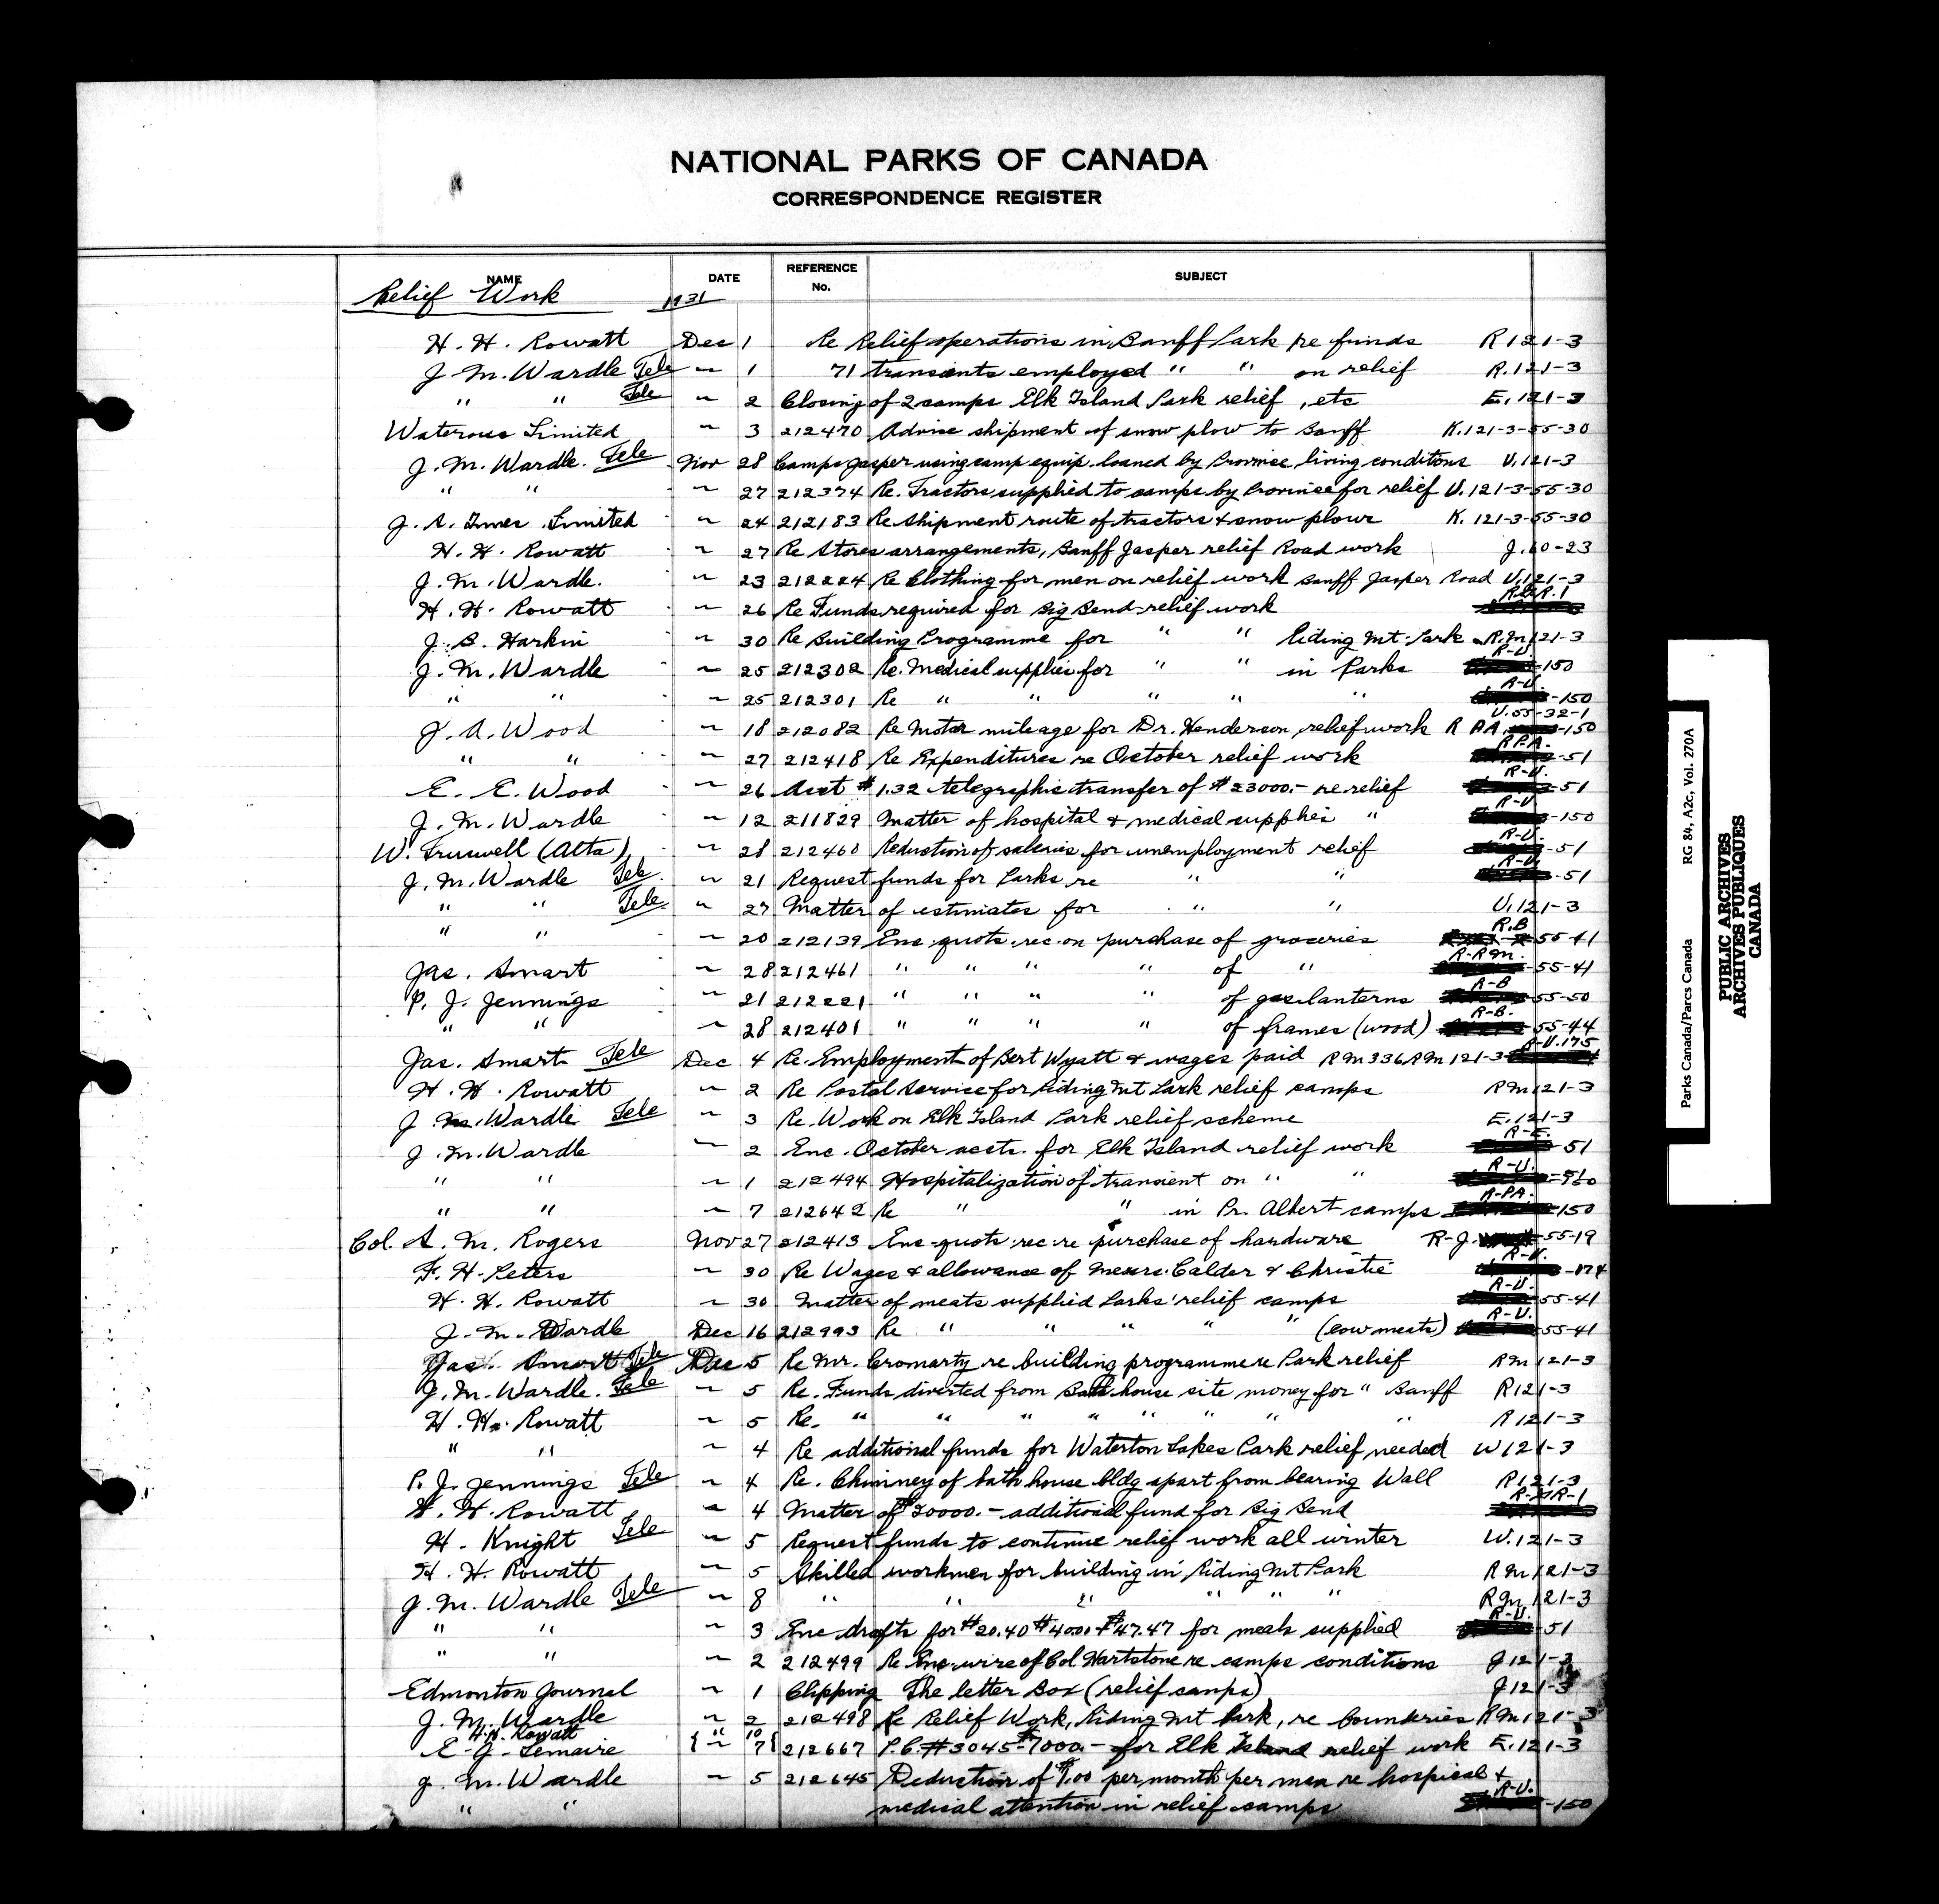 NATIONAL PARKS OF CANADA
CORRESPONDENCE REGISTER
NAME DATE REFERENCE No. SUBJECT
Relief Work 1931
H. H. Rowatt Dec 1 Re Relief operations in Banff Park re funds R 121-3
J. M. Wardle Tele " 1 71 transients employed " " on relief R. 121-3
" " Tele " 2 Closing of 2 camps Elk Island Park relief, etc E. 121-3
Waterous Limited " 3 212470 Advise shipment of snow plow to Banff K. 121-3-55-30
J. M. Wardle. Tele Nov 28 Camps Jasper using camp equip. loaned by Province living conditions U. 121-3
" " " 27 212374 Re. Tractors supplied to camps by Province for relief U. 121-3-55-30
J. A. Limited " 24 212183 Re Shipment route of tractors & snow plows K. 121-3-55-30
H. H. Rowatt " 27 Re Stores arrangements, Banff Jasper relief Road work J. 60-23
J. M. Wardle. " 23 212224 Re Clothing for men on relief work Banff Jasper Road U. 121-3
H. H. Rowatt " 26 Re Funds required for Big Bend relief work
J. B. Harkin " 30 Re Building Programme for " " Riding Mt. Park R.M 121-3
J. M. Wardle " 25 212302 Re. Medical supplies for " " in Parks R-U. -150
" " " 25 212301 Re " " " " " R-U. -150
J. A. Wood " 18 212082 Re Motor mileage for Dr. Henderson relief work U.55-32-1 R PA -150
" " " 27 212418 Re Expenditures re October relief work R P.A. -51
E. E. Wood " 26 Acct # 132 telegraphic transfer of $23000.- re relief R-U. -51
J. M. Wardle " 12 211829 Matter of hospital & medical supplies " R-U -150
W. (Alta) " 28 212460 Reduction of salaries for unemployment relief R-U. -51
J. M. Wardle Tele. " 21 Request funds for Parks re " " R-U. -51
" " Tele. " 27 Matter of estimates for " " U. 121-3
" " " 20 212139 Enc. quots. rec. on purchase of groceries R.B 55-41
Jas. Smart " 28 212461 " " " " of " R-RM. -55-41
P. J. Jennings " 21 212221 " " " " of gas lanterns R-B -55-50
" " " 28 212401 " " " " of frames (wood) R-B. -55-44
Jas. Smart Tele Dec 4 Re. Employment of Bert Wyatt & wages paid RM 336 RM 121-3 R-U.175
H. H. Rowatt " 2 Re Postal Service for Riding Mt Park relief camps RM 121-3
J. M. Wardle Tele " 3 Re. Work on Elk Island Park relief scheme E. 121-3
J. M. Wardle " 2 Enc. October accts. for Elk Island relief work R-E. -51
" " " 1 212494 Hospitalization of transient on " " R-U.
" " " 7 212642 Re " " in Pr. Albert camps R-PA. -150
Col. A. M. Rogers Nov 27 212413 Enc. quots. rec. re purchase of hardware R-J. 55-19
F. H. Peters " 30 Re Wages & allowance of Messrs. Calder & Christie R-U. -174
H. H. Rowatt " 30 Matter of meats supplied Parks' relief camps R-U. 55-41
J. M. Wardle Dec 16 212993 Re " " " " " (cow meats) R-U. 55-41
Jas. Smart Tele Dec 5 Re Mr. Cromarty re building programme re Park relief RM 121-3
J. M. Wardle. Tele " 5 Re. Funds diverted from Bath house site money for " Banff R 121-3
H. H. Rowatt " 5 Re. " " " " " " " " R 121-3
" " " 4 Re additional funds for Waterton Lakes Park relief needed W 121-3
P. J. Jennings Tele " 4 Re. Chimney of bath house bldg apart from bearing Wall R 121-3
H. H. Rowatt " 4 Matter of $20000.- additional fund for Big Bend
H. Knight Tele " 5 Request funds to continue relief work all winter W. 121-3
H. H. Rowatt " 5 Skilled workmen for building in Riding Mt Park RM 121-3
J. M. Wardle Tele " 8 " " " " " " RM 121-3
" " " 3 Enc drafts for $20.40 $47.47 for meals supplied R-U. 51
" " " 2 212499 Re Enc. wire of Col Hartstone re camps conditions J 121-3
Edmonton Journal " 1 Clipping The letter Box (relief camps) J 121-3
J. M. Wardle " 2 212498 Re Relief Work, Riding Mt Park, re Bounderies RM 121-3
H. H. Rowatt " 10
E. J. Lemaire " 7 212667 P.C. # 3045 - $7000.- for Elk Island relief work E. 121-3
J. M. Wardle " 5 212645 Deduction of $1.00 per month per man re hospical &
" " medical attention in relief camps R-U. -150
Parks Canada/Parcs Canada RG 84, A2c, Vol. 270A
PUBLIC ARCHIVES
ARCHIVES PUBLIQUES
CANADA